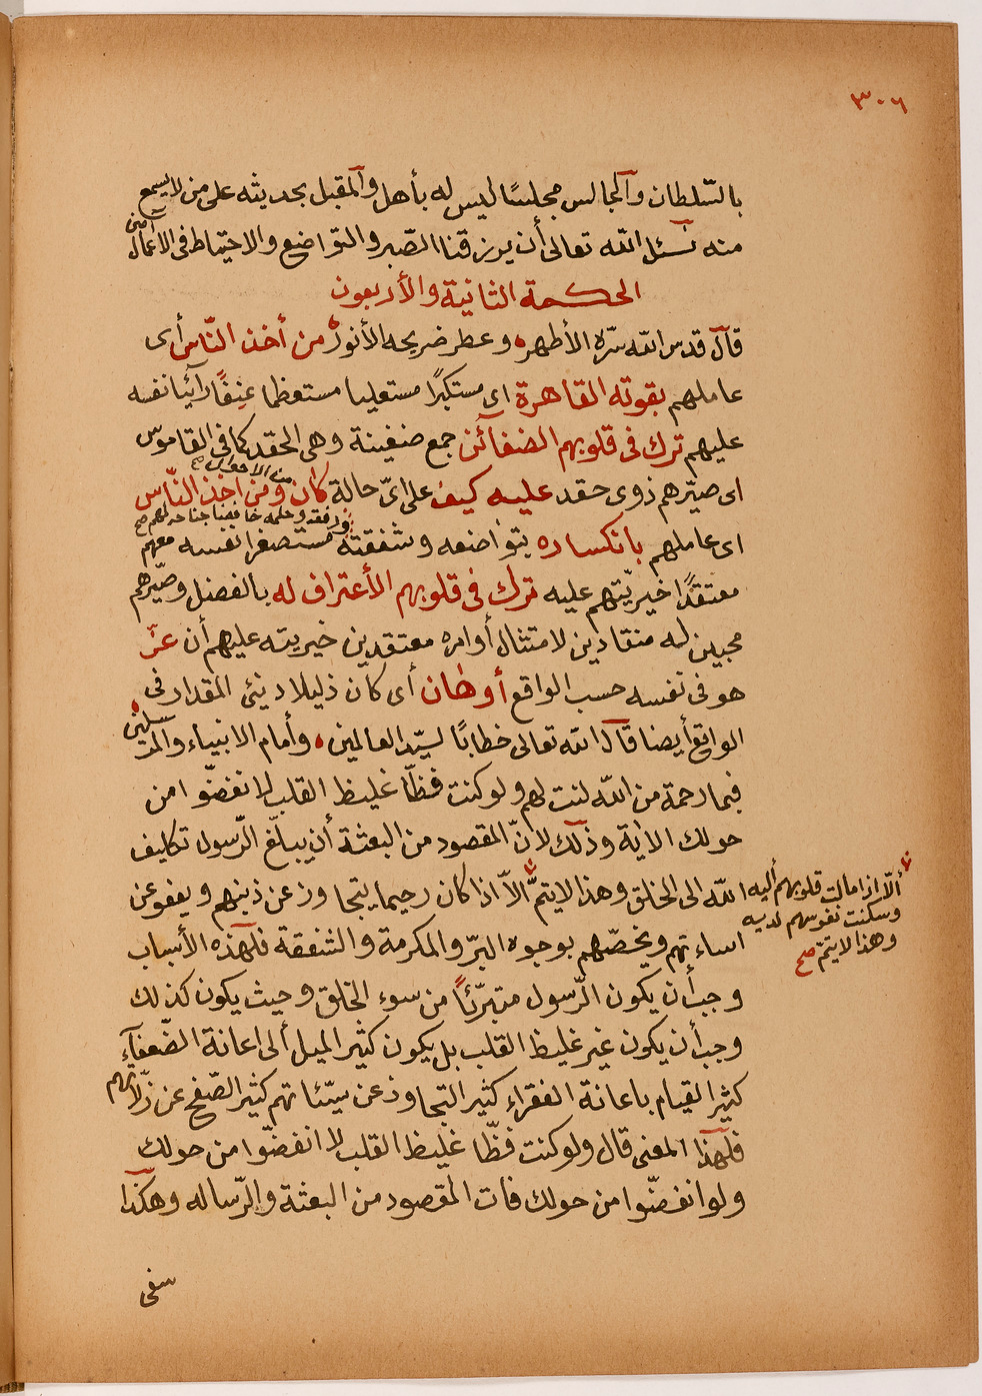 ٣٠٦
بالسّلطان والجالس مجلسًا ليس له بأهل والمقبل بحديثه على من لا يسمع
منه نسئل الله تعالى أن يرزقنا الصّبر والتواضع والاحتياط فى الاعمال آمين
الحكمة الثانية والأربعون
قال قدس الله سرّه الأطهر وعطر ضريحه الأنور من أخذ النّاس أى
عاملهم بقوته القاهرة اى مستكبرًا مستعليا مستعظما عنِفًا رآئيا نفسه
عليهم ترك فى قلوبهم الضغآئن جمع ضغينة وهى الحقد كما فى القاموس
اى صيّرهم ذوى حقد عليه كيف على اىّ حالة كان من الاحوال صح ومن اخذ النّاس
اى عاملهم بانكساره بتواضعه وشفقته ورفقه وحلمه خافضا جناحه لهم صح مستصغرا نفسه معهم
معتقدًا خيريّتهم عليه ترك فى قلوبهم الأعتراف له بالفضل وصيّرهم
محبين له منقادين لامتثال أوامره معتقدين خيريته عليهم أن عزّ
هو فى نفسه حسب الواقع أو هان أى كان ذليلا دنئى المقدار فى
الواقع أيضا قال الله تعالى خطابًا لسيّد العالمين وأمام الانبياء والمرسلين
فبما رحمة من الله لنت لهم ولو كنت فظّا غليظ القلب لا نفضّوا من
حولك الاٰية وذلك لانّ المقصود من البعثة أن يبلّغ الرّسول تكاليف
الله الى الخلق وهذا لايتمّ الاّ اذا كان رحيما يتجاوز عن ذنبهم ويعفو عن
ألّا اذا مالت قلوبهم أليه
وسكنت نفوسهم لديه
وهذا لايتمّ صح
اساءتهم ويخصّهم بوجوه البرّ والمكرمة والشفقة فلهذه الأسباب
وجب أن يكون الرّسول متبرّئاً من سوء الخلق وحيث يكون كذلك
وجب أن يكون غير غليظ القلب بل يكون كثير الميل ألى اعانة الضّعفآء
كثير القيام باعانة الفقراء كثير التجاوز عن سيّئاتهم كثير الصّفح عن زلّاتهم
فلهذا المعنى قال ولو كنت فظّا غليظ القلب لا انفضّوا من حولك
ولو انفضّوا من حولك فات المقصود من البعثة والرّساله وهكذا